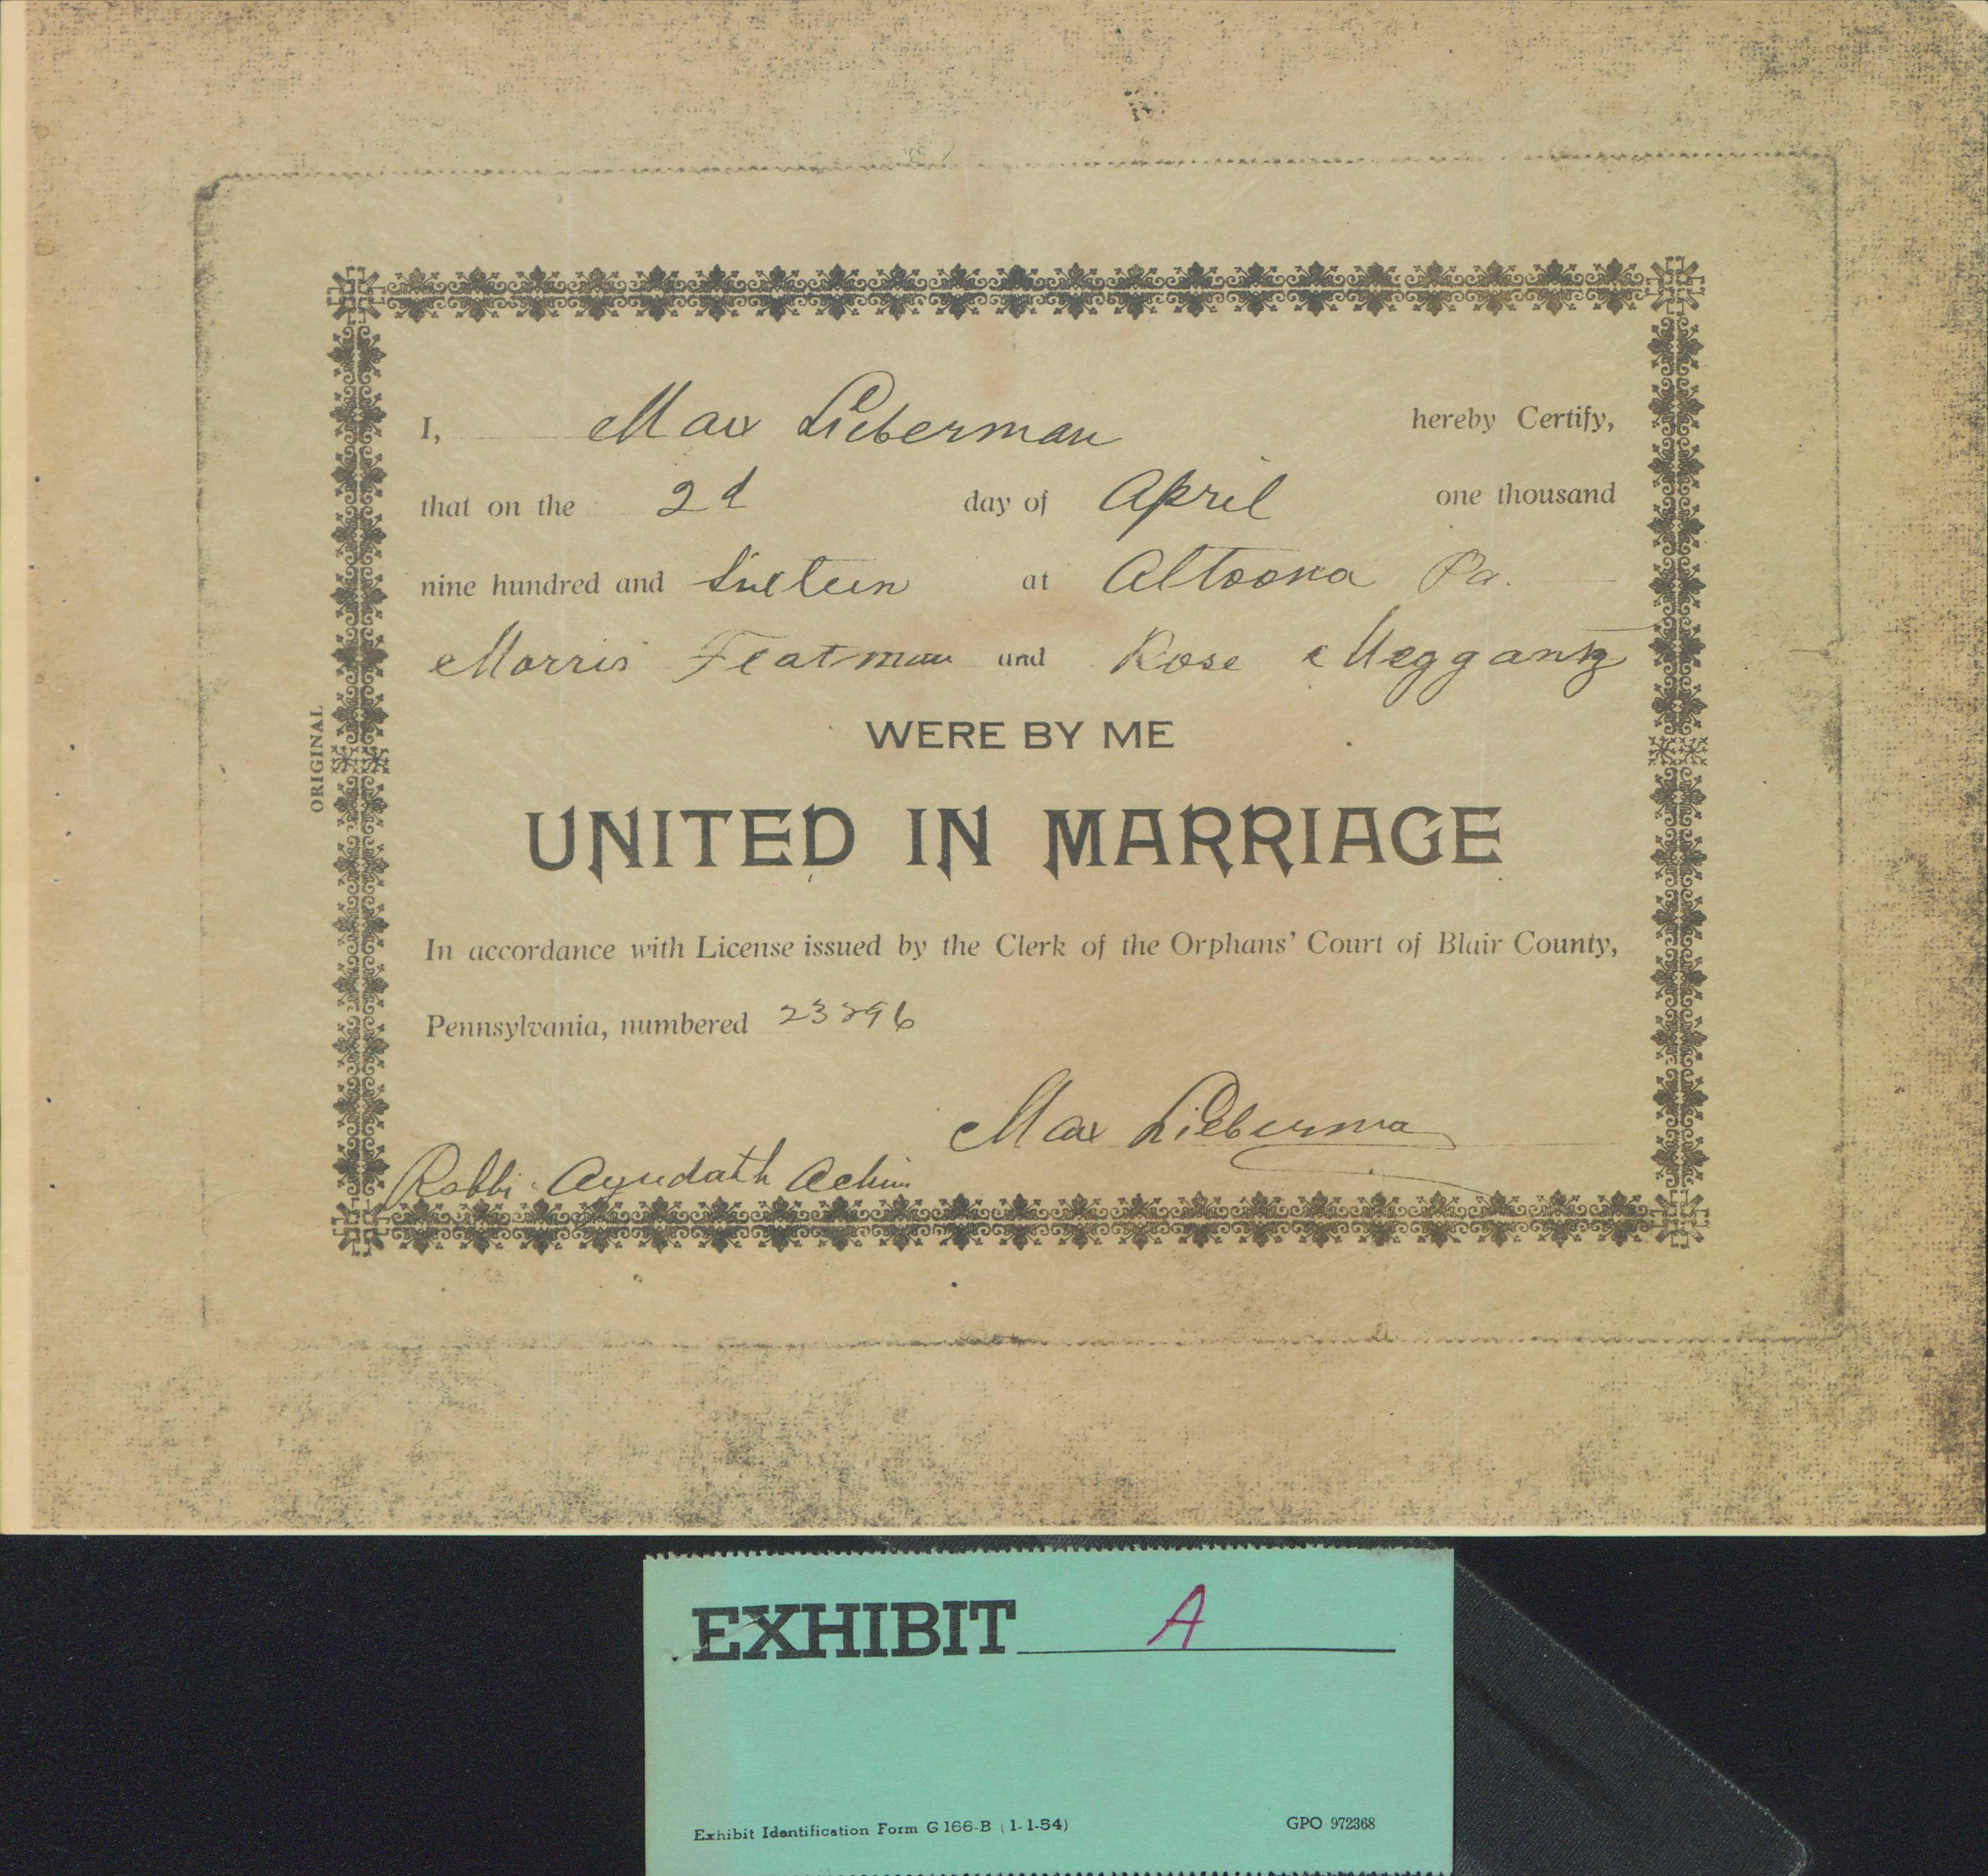 I, Max Lieberman hereby Certify,
that on the 2d day of April one thousand
nine hundred and Sixteen at Altoona Pa.
Morris Flatman and Rose Meggantz
WERE BY ME
UNITED IN MARRIAGE
In accordance with License issued by the Clerk of the Orphans' Court of Blair County,
Pennsylvania, numbered 23296
Max Lieberman
Rabbi Agudath Achim
ORIGINAL
EXHIBIT A
Exhibit Identification Form G 166-B (1-1-54) GPO 972368